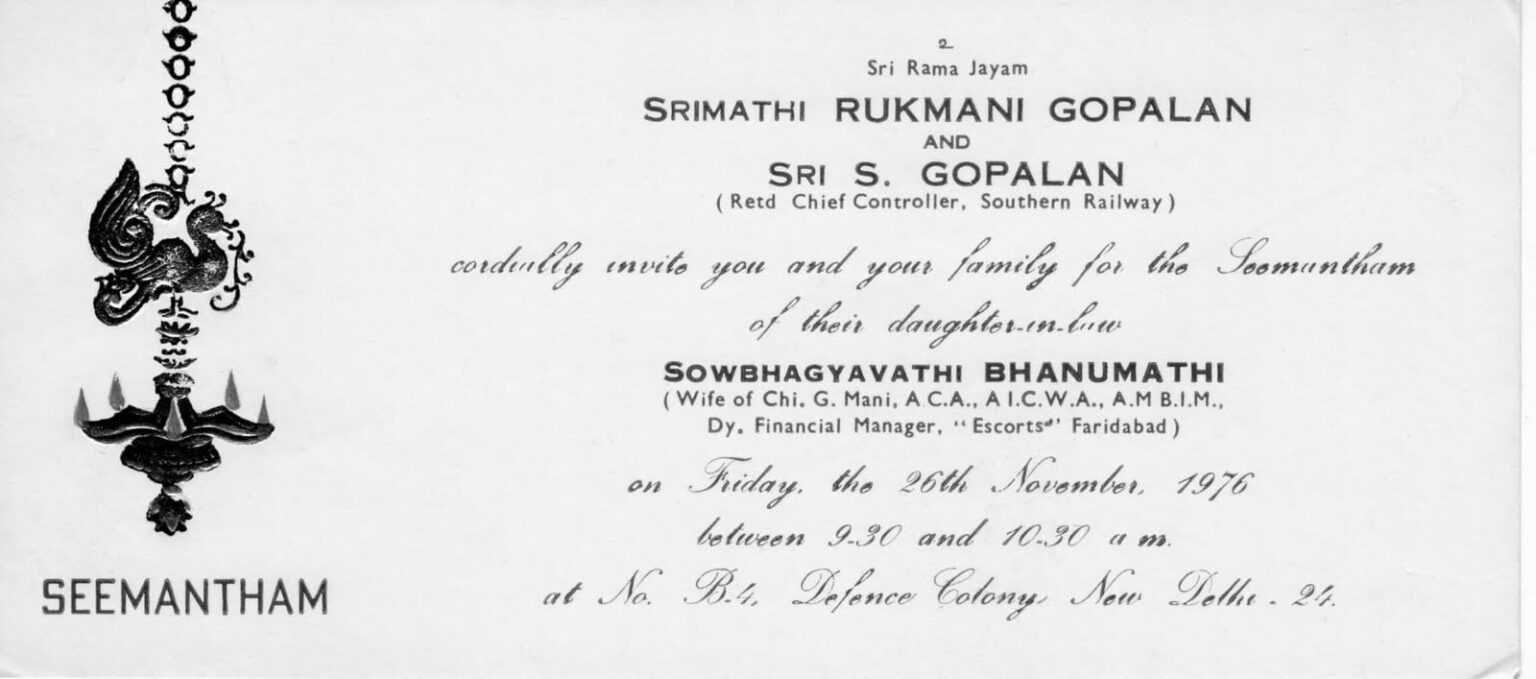 உ
Sri Rama Jayam
SRIMATHI RUKMANI GOPALAN
AND
SRI S. GOPALAN
(Retd Chief Controller, Southern Railway)
cordially invite you and your family for the Seemantham
of their daughter-in-law
SOWBHAGYAVATHI BHANUMATHI
(Wife of Chi. G. Mani, A C.A., A I.C.W.A., A.M B.I.M.,
Dy. Financial Manager, "Escorts" Faridabad)
on Friday, the 26th November, 1976
between 9-30 and 10-30 a m.
at No. B-4, Defence Colony, New Delhi - 24.
SEEMANTHAM